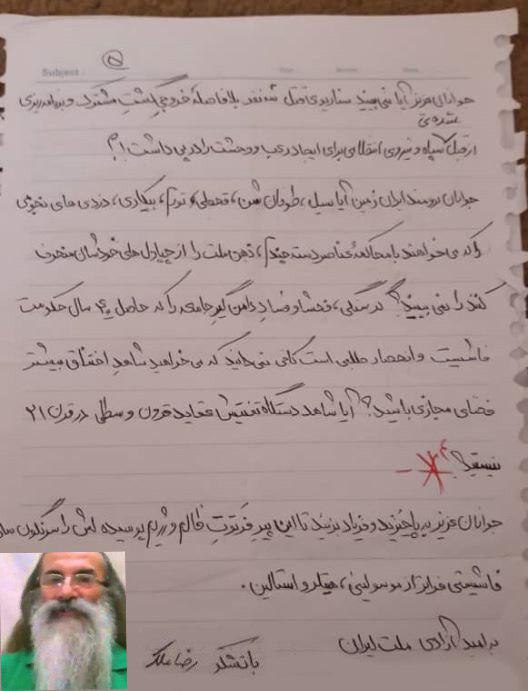 ۵
Subject :
جوانان عزیز آیا نمی‌بینید سناریوی قتل شد نفر بلافاصله خروجی گشت مشترک و برنامه‌ریزی
شده‌ی
از قبل سپاه و نیروی انتظامی برای ایجاد رعب و وحشت را در پی داشت؟!
جوانان برومند ایران زمین آیا سیل، طوفان شن، قحطی، تورم، بیکاری، دزدی های نجومی
را که می خواهند با محاکمهٔ عناصر دسته چندم، ذهن ملت را از چپاول های خودشان منحرف
کنند را نمی بینید؟ گرسنگی، فحشا و فساد دامن گیر جامعه را که حاصل ۴۰ سال حکومت
فاشیست و انحصار طلبی است کافی نمی دانید که می خواهید شاهد اختناق بیشتر
فضای مجازی باشید؟ آیا شاهد دستگاه تفتیش عقاید قرون وسطی در قرن ۲۱
نیستید؟
جوانان عزیز به پا خیزید و فریاد بزنید تا این پیر فرتوت ظالم و رژیم پوسیده اش را سرنگون سا
فاشیستی فراتر از موسولینی، هیتلر و استالین.
به امید آزادی ملت ایران
با تشکر رضا ملک